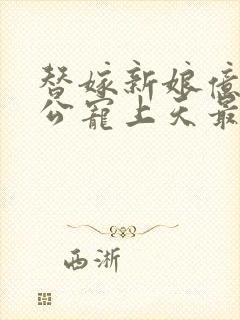 替嫁新娘億
公寵上天最
西淅